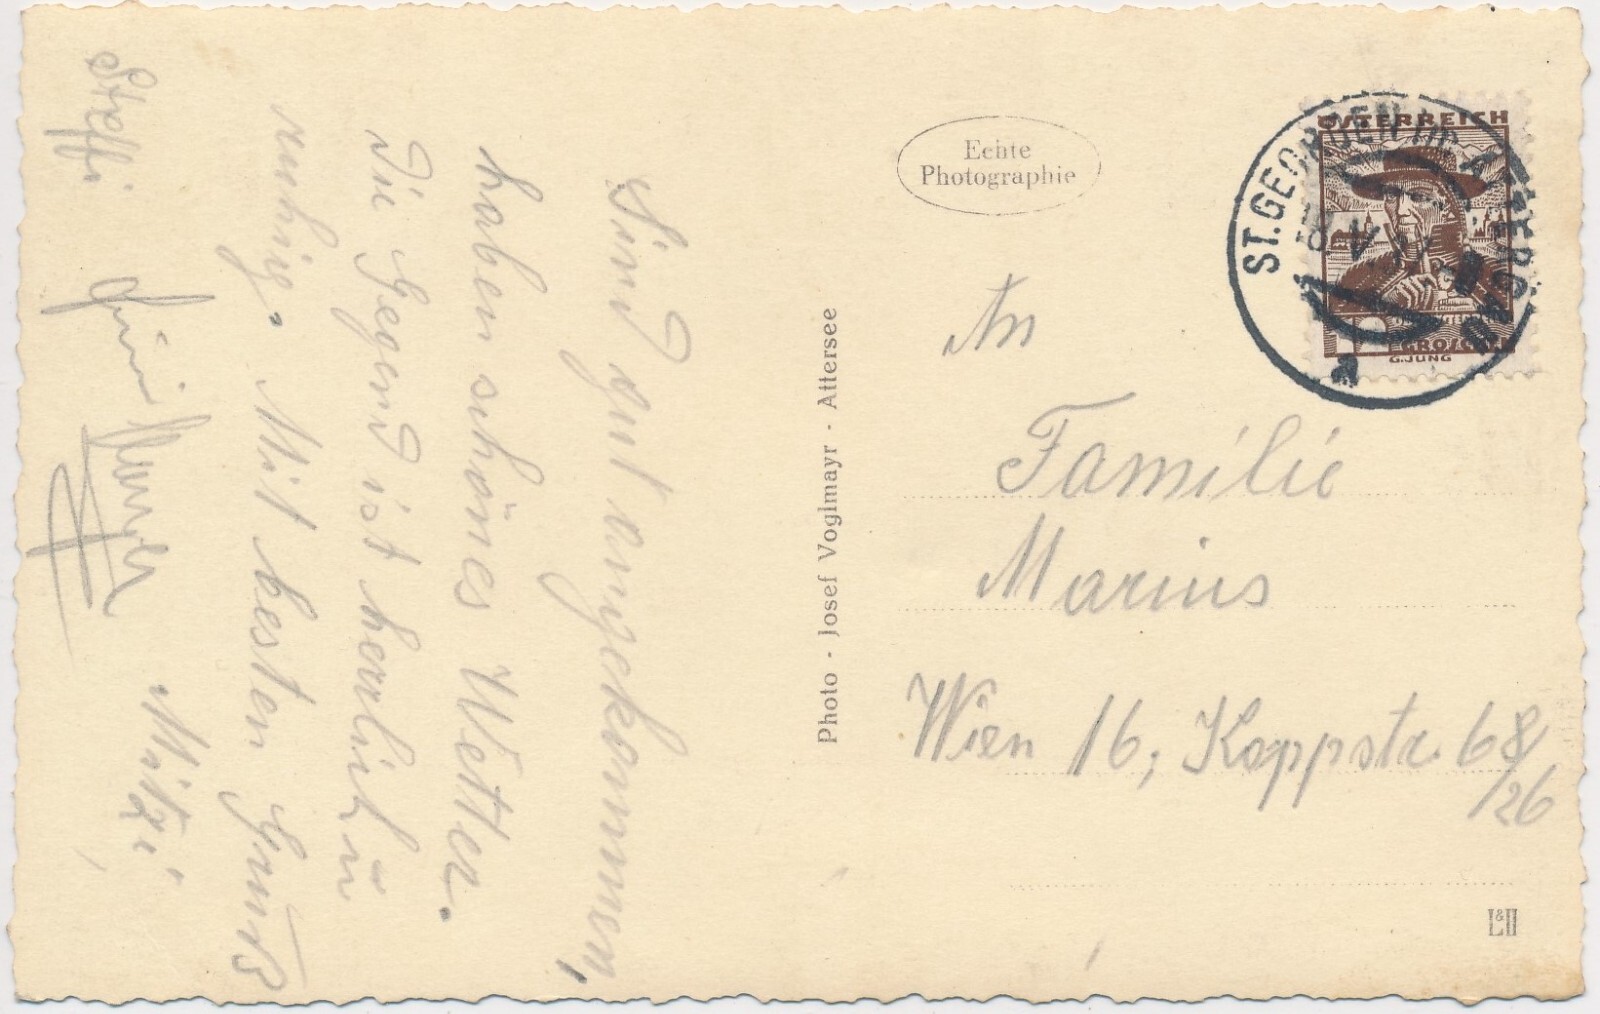 Sind gut angekommen,
haben schönes Wetter.
Die Gegend ist herrlich u
ruhig. Mit besten Gruß
Mitzi
Steffi
Photo - Josef Voglmayr - Attersee
Echte
Photographie
ÖSTERREICH
ST. GEORGEN IM ATTERGAU
18. V.
a
GROSCHEN
G. JUNG
An
Familie
Marius
Wien 16, Koppstr. 68
/26
L&H